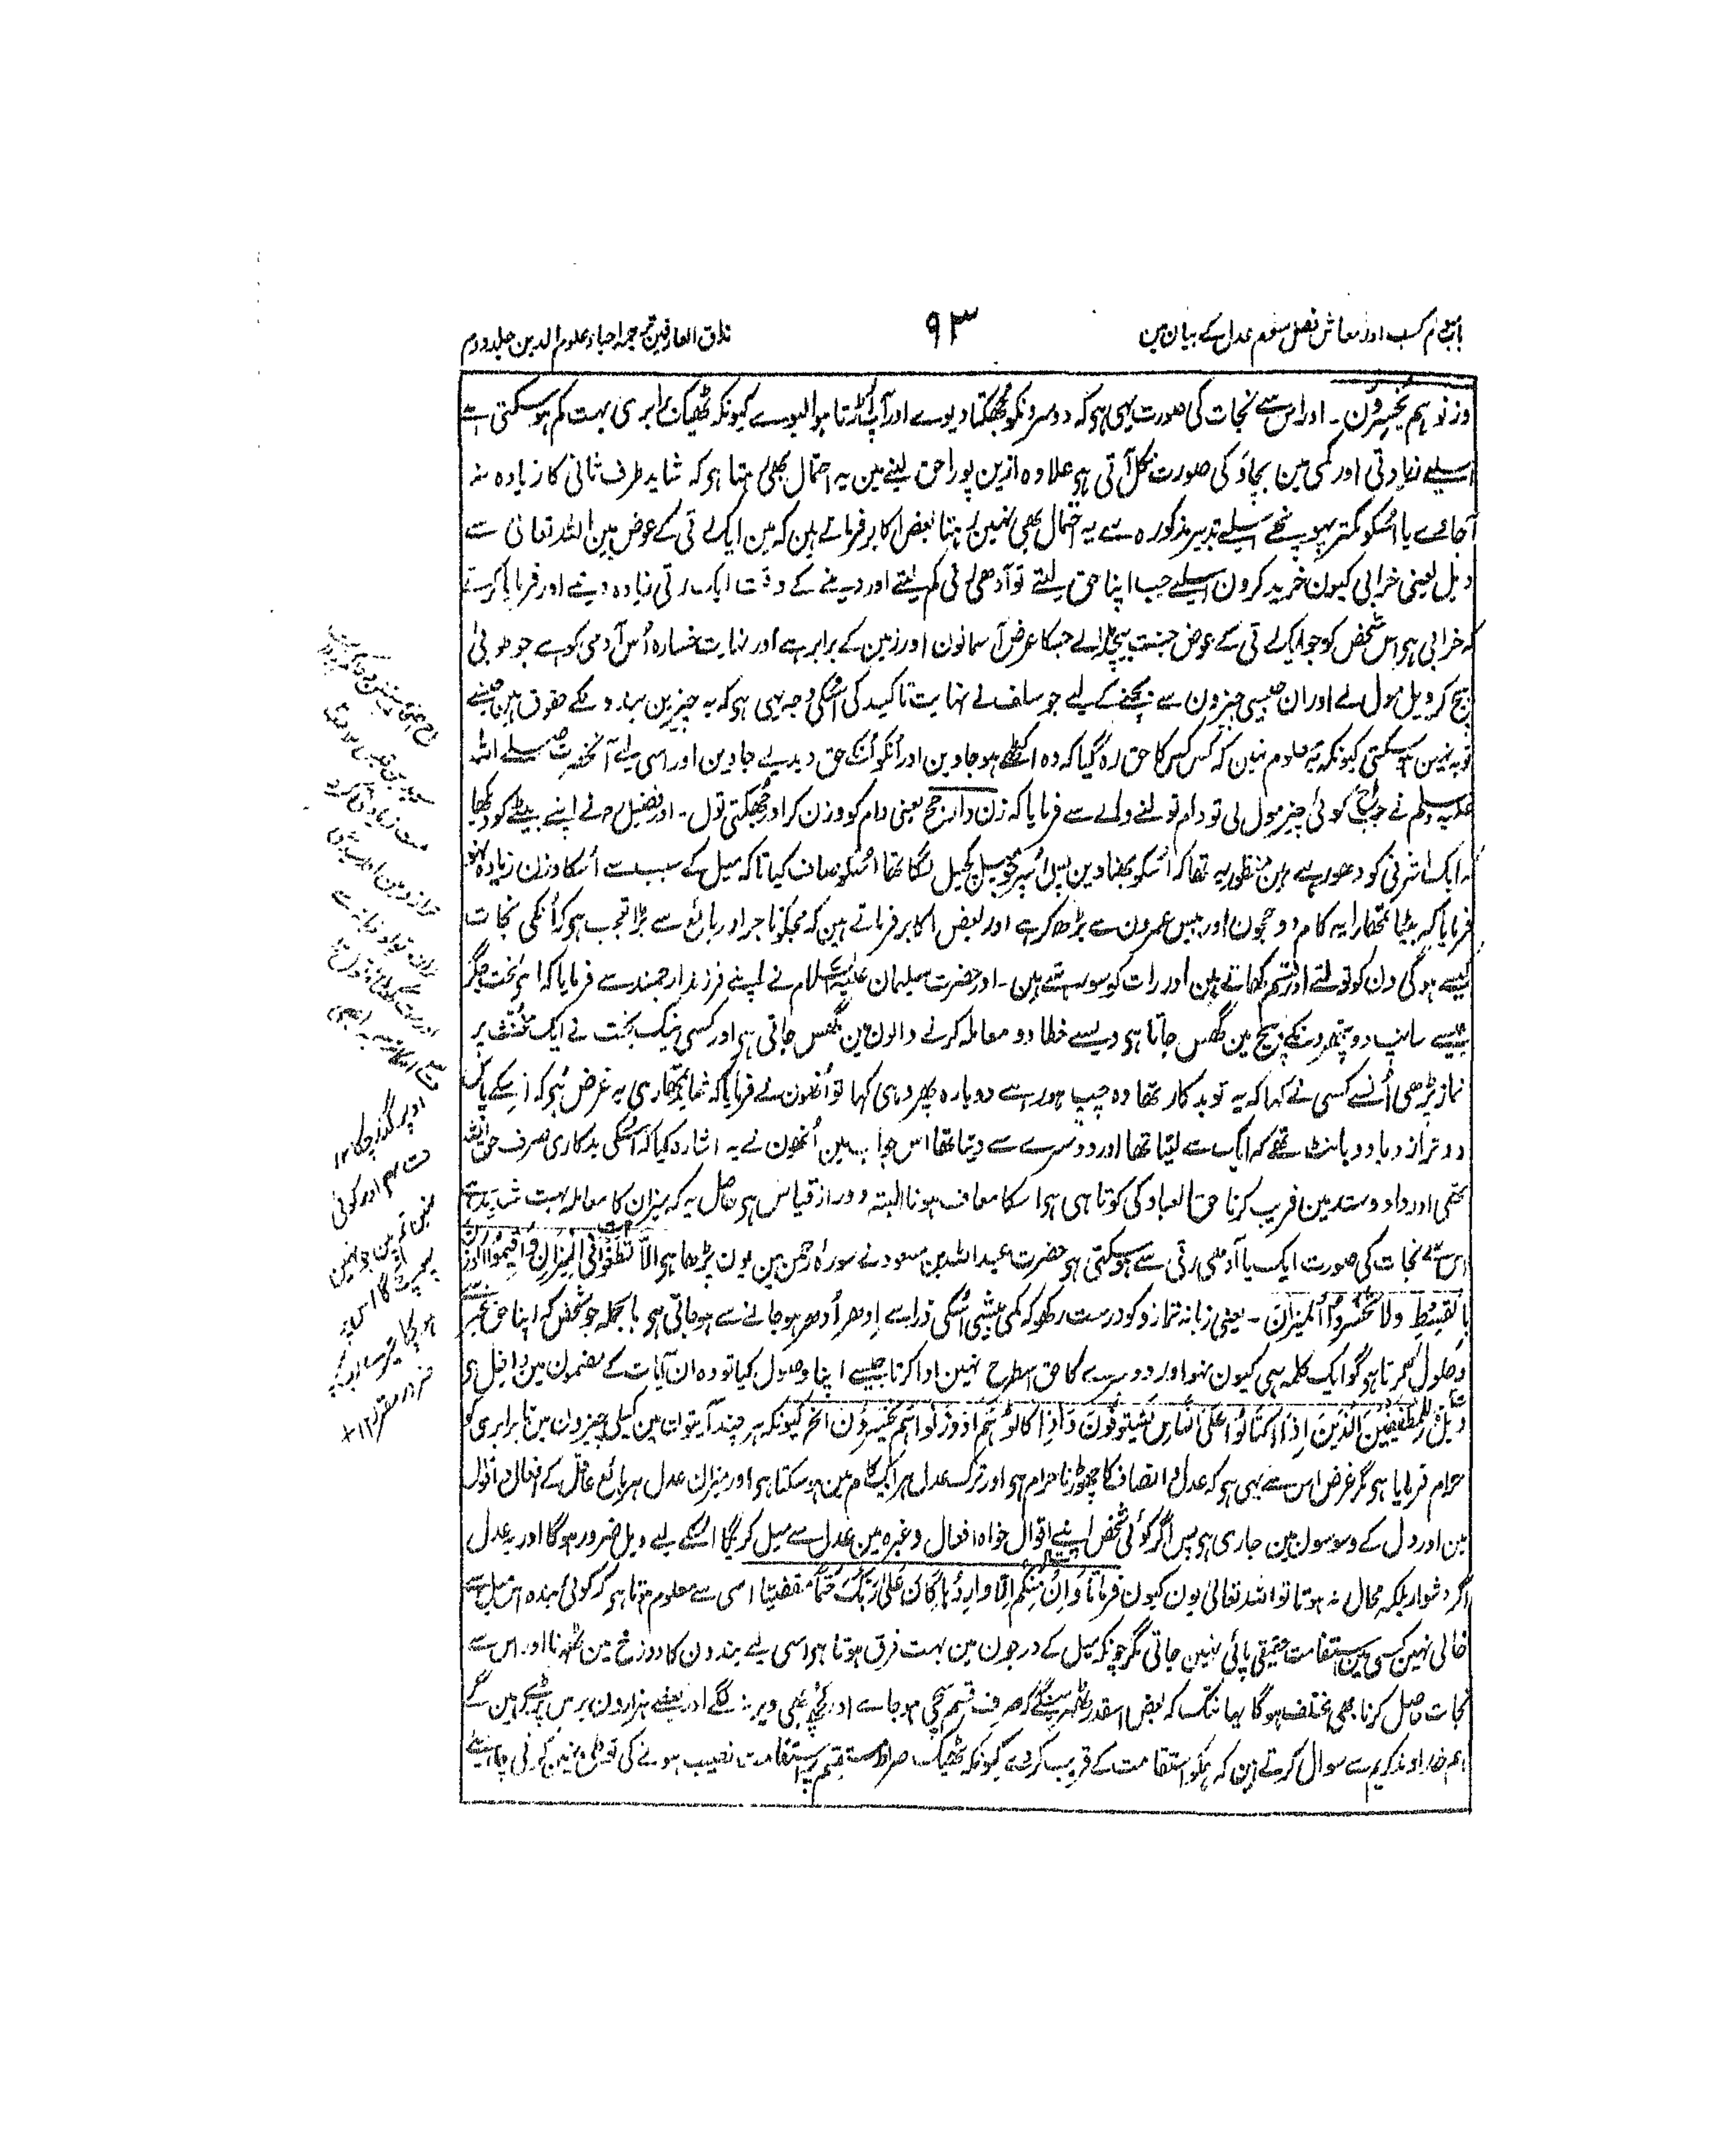 باب سوم کسب اور معاش فصل سوم عدل کے بیان مین
۹۳
مذاق العارفین ترجمہ احیاء علوم الدین جلد دوم
وزنوہم یخسرون۔ اور اس سے نجات کی صورت یہی ہو کہ دوسرونکو جھکتا دیوے اور آپ اُترتا ہوا لیوے کیونکہ ٹھیک برابری بہت کم ہو سکتی ہے
اسلیے زیادتی اور کمی مین بچاؤ کی صورت نکل آتی ہو علاوہ ازین پورا حق لینے مین یہ احتمال بھی رہتا ہو کہ شاید طرف ثانی کا زیادہ نہ
آجائے یا اُسکو کمتر پہونچے اسلیے تدبیر مذکورہ سے یہ احتمال بھی نہین رہتا بعض اکابر فرماتے ہین کہ مین ایک رتی کے عوض مین اللہ تعالیٰ سے
ویل یعنی خرابی کیون خرید کرون اسلیے جب اپنا حق لیتے تو آدھی رتی کم لیتے اور دینے کے وقت ایک رتی زیادہ دیتے اور فرمایا کرتے
کہ خرابی ہو اس شخص کو جو ایک رتی کے عوض جنت بیچڈالے جسکا عرض آسمانون اور زمین کے برابر ہے اور نہایت خسارہ اُس آدمی کو ہے جو طوبیٰ
بیچ کر ویل مول لے اور ان جیسی چیزون سے بچنے کے لیے جو سلف نے نہایت تاکید کی اُسکی وجہ یہی ہو کہ یہ چیزین بندونکے حقوق ہین جنسے
توبہ نہین ہو سکتی کیونکہ یہ معلوم نہین کہ کس کس کا حق رہ گیا کہ وہ اکٹھے ہو جاوین اور اُنکو اُنکے حق دیدیے جاوین اور اسی لیے آنحضرت صلے اللہ
علیہ وسلم نے جب کوئی چیز مول لی تو دام تولنے والے سے فرمایا کہ زن وارجح یعنی دام کو وزن کر اور جھکتی تول۔ اور فضیل رحمہ نے اپنے بیٹے کو دیکھا
کہ ایک اشرفی کو دھو رہے ہین منظور یہ تھا کہ اُسکو بھنا دین پس اُسپر جو میل کچیل لگا تھا اُسکو صاف کیا تاکہ میل کے سبب سے اُسکا وزن زیادہ نہو
فرمایا کہ بیٹا تمھارا یہ کام دو حجون اور بیس عمرون سے بڑھ کر ہے اور بعض اکابر فرماتے ہین کہ مجکو تاجر اور بائع سے بڑا تعجب ہو کہ اُنکی نجات
کیسے ہوگی دن کو تولتے اور قسم کھاتے ہین اور رات کو سو رہتے ہین۔ اور حضرت سلیمان علیہ السلام نے اپنے فرزند ارجمند سے فرمایا کہ اے لخت جگر
جیسے سانپ دو پتھرونکے بیچ مین گھس جاتا ہو ویسے خطا دو معاملہ کرنے والون مین گھس جاتی ہو اور کسی نیک بخت نے ایک مخنث پر
نماز پڑھی اُنسے کسی نے کہا کہ یہ تو بدکار تھا وہ چپ ہو رہے دوبارہ پھر وہی کہا تو اُنھون نے فرمایا کہ شاید تمھاری یہ غرض ہو کہ اُسکے پاس
دو ترازو یا دو بانٹ تھے کہ ایک سے لیتا تھا اور دوسرے سے دیتا تھا اس جواب مین اُنھون نے یہ اشارہ کیا کہ اُسکی بدکاری صرف حق اللہ
تھی اور داد و ستد مین فریب کرنا حق العباد کی کوتاہی ہو اسکا معاف ہونا البتہ دور از قیاس ہو حاصل یہ کہ میزان کا معاملہ بہت شدید ہے
اس سے نجات کی صورت ایک یا آدھی رتی سے ہو سکتی ہو حضرت عبد اللہ بن مسعود نے سورہ رحمن مین یون پڑھا ہو الا تطغوا فی المیزان واقیموا الوزن
بالقسط ولا تخسروا المیزان۔ یعنی زبانہ ترازو کو درست رکھو کہ کمی بیشی اُسکی ذرا سے اِدھر اُدھر ہو جانے سے ہو جاتی ہو بالجملہ جو شخص کہ اپنا حق غیر سے
وصول کرتا ہو گو ایک کلمہ ہی کیون نہو اور دوسرے کا حق اسطرح نہین ادا کرتا جیسے اپنا وصول کیا تو وہ ان آیات کے مضمون مین داخل ہو
ویل للمطففین الذین اذا اکتالوا علی الناس یستوفون واذا کالوہم او وزنواہم یخسرون الخ کیونکہ ہر چند آیتون مین کیلی چیزون مین نابرابری کو
حرام فرمایا ہو مگر غرض اس سے یہی ہو کہ عدل و انصاف کا چھوڑنا حرام ہو اور ترک عدل ہر ایک کام مین ہو سکتا ہو اور میزان عدل ہر بالغ عاقل کے افعال و اقوال
مین اور دل کے وسوسون مین جاری ہو پس اگر کوئی شخص اپنے اقوال خواہ افعال وغیرہ مین عدل سے میل کریگا اُسکے لیے ویل ضرور ہوگا اور یہ عدل
اگر دشوار بلکہ محال نہ ہوتا تو اللہ تعالیٰ یون کیون فرماتا وان منکم الا واردہا کان علی ربک حتما مقضیا اسی سے معلوم ہوتا ہو کہ کوئی بندہ اس میل سے
خالی نہین کسی مین استقامت حقیقی پائی نہین جاتی مگر چونکہ میل کے درجون مین بہت فرق ہوتا ہو اسی لیے بندون کا دوزخ مین ٹھہرنا اور اس سے
نجات حاصل کرنا بھی مختلف ہوگا یہانتک کہ بعض اسقدر ٹھہرینگے کہ صرف قسم سچی ہو جاے اور کچھ بھی دیر نہ لگے اور بعضے ہزارون برس پڑے رہین گے
ہم خداوند کریم سے سوال کرتے ہین کہ ہمکو استقامت کے قریب کردے کیونکہ ٹھیک صراط مستقیم پر استقامت نصیب ہونے کی توقع نہین کرنی چاہیے
اوپر گذر چکا ۱۲
اور کوئی